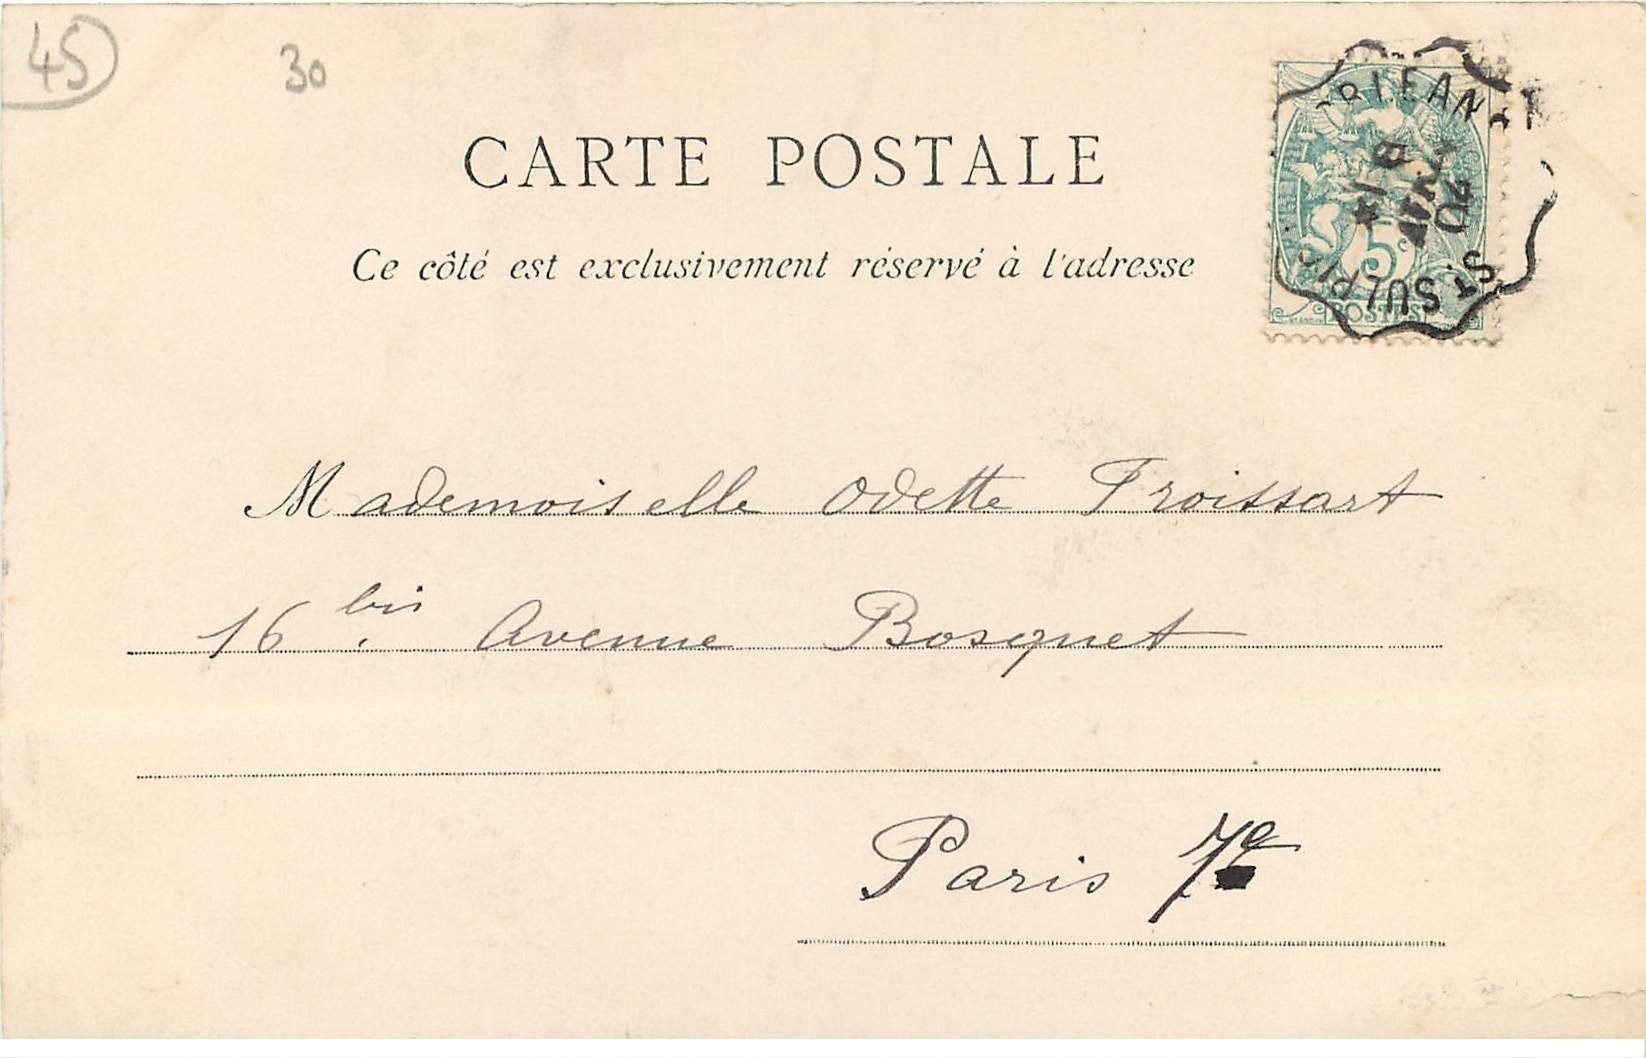 45
30
CARTE POSTALE
Ce côté est exclusivement réservé à l'adresse
5c
POSTES
ORLEANS
ST SULPICE
20
Mademoiselle Odette Froissart
16 bis Avenue Bosquet
Paris 7e